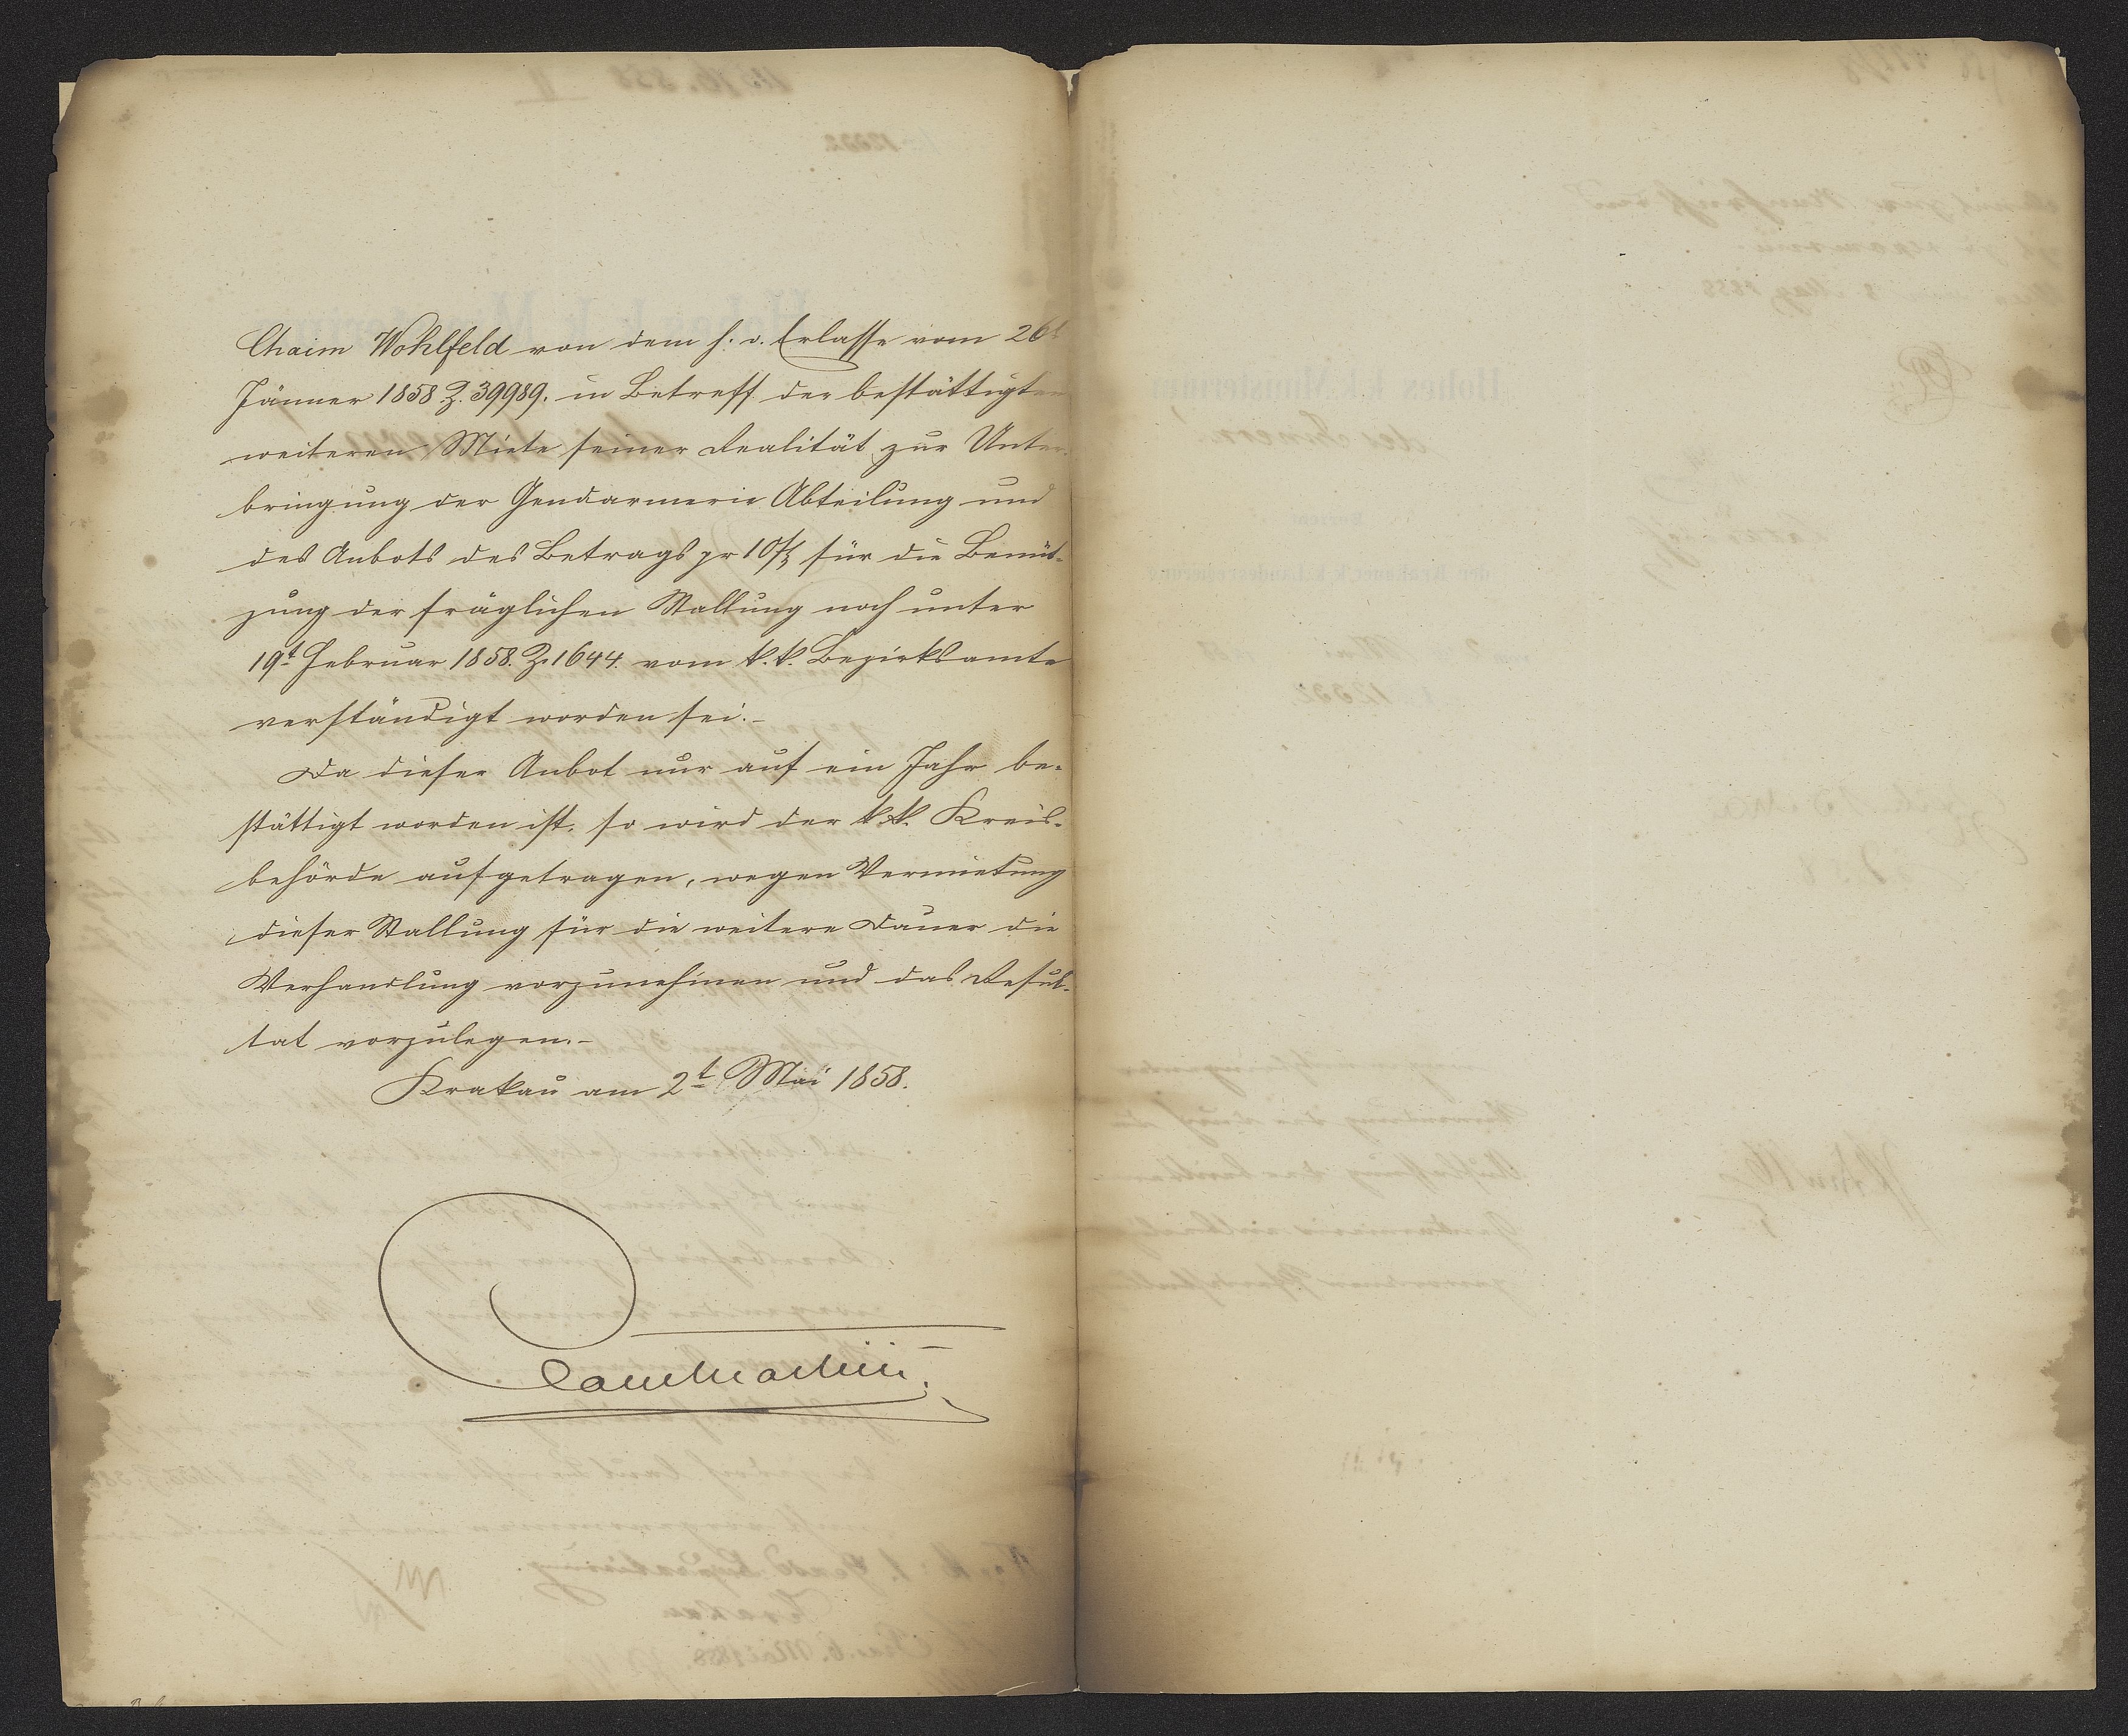 Chaim Wohlfeld von dem h. o. Erlasse vom 26t
Jänner 1858 Z. 39989. in Betreff der bestättigten
weiteren Miete seiner Realität zur Unter-
bringung der Gendarmerie Abteilung und
des Anbots des Betrags pr 10 für die Benüt-
zung der fräglichen Stallung noch unter
19t Februar 1858. Z. 1644. vom k. k. Bezirksamte
verständigt worden sei.-
Da dieser Anbot nur auf ein Jahr be-
stättigt worden ist, so wird der k.k. Kreis-
behörde aufgetragen, wegen Vermietung
dieser Stallung für die weitere Dauer die
Verhandlung vorzunehmen und das Resul-
tat vorzulegen.-
Krakau am 2t Mai 1858.